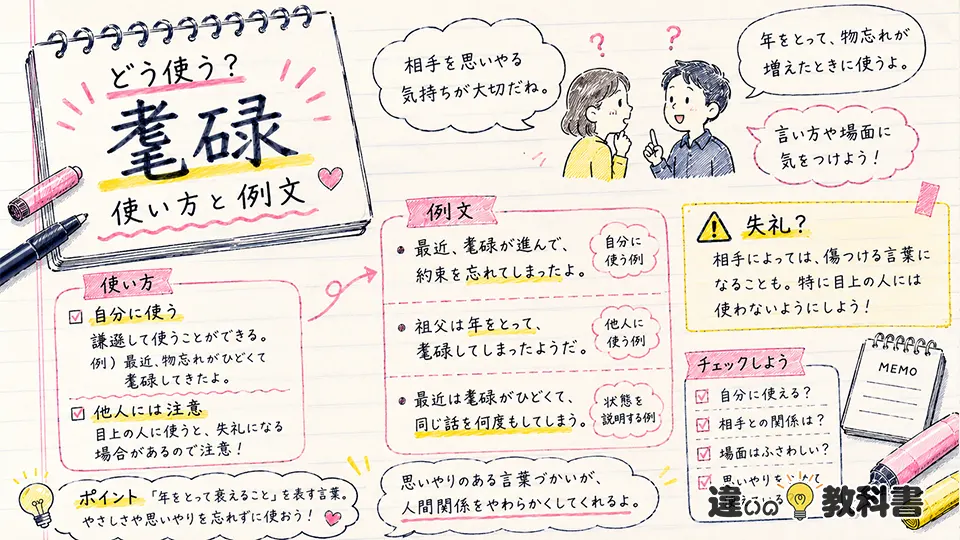 どう使う？
耄碌
使い方と例文
相手を思いやる
気持ちが大切だね。
?
?
年をとって、物忘れが
増えたときに使うよ。
言い方や場面に
気をつけよう！
使い方
自分に使う
謙遜して使うことができる。
例）最近、物忘れがひどくて
耄碌してきたよ。
他人には注意
目上の人に使うと、失礼になる
場合があるので注意！
例文
最近、耄碌が進んで、
約束を忘れてしまったよ。
自分に
使う例
祖父は年をとって、
耄碌してしまったようだ。
他人に
使う例
最近は耄碌がひどくて、
同じ話を何度もしてしまう。
状態を
説明する例
失礼？
相手によっては、傷つける言葉に
なることも。特に目上の人には
使わないようにしよう！
チェックしよう
自分に使える？
相手との関係は？
場面はふさわしい？
思いやりを
MEMO
ポイント 「年をとって衰えること」を表す言葉。
やさしさや思いやりを忘れずに使おう！
思いやりのある言葉づかいが、
人間関係をやわらかくしてくれるよ。
違いの教科書